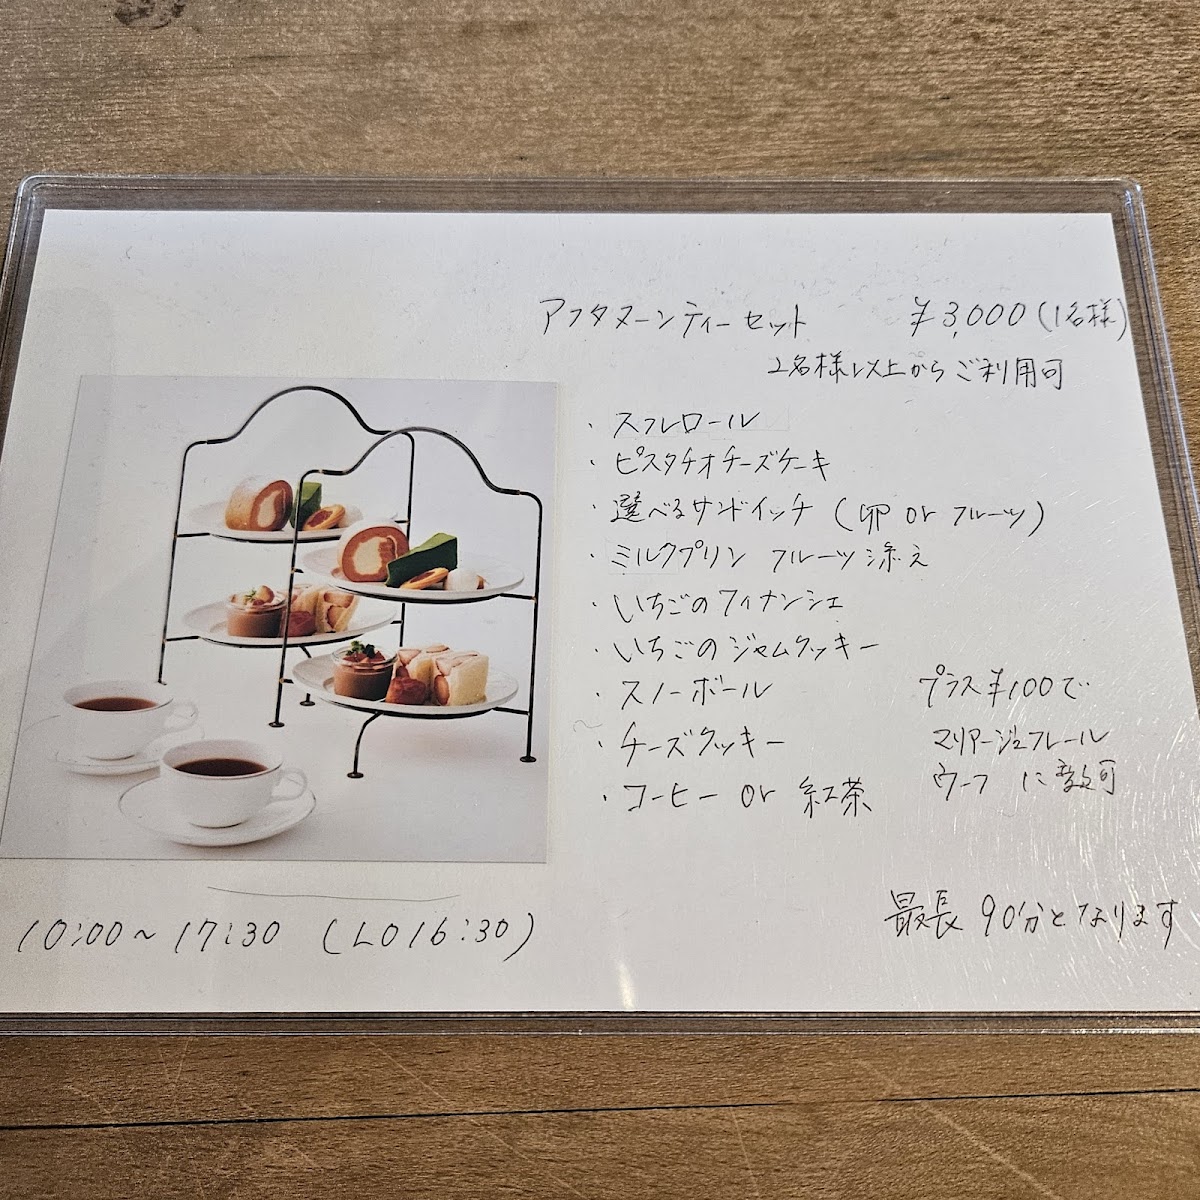 アフタヌーンティーセット ¥3,000(1名様)
2名様以上からご利用可
・スフレロール
・ピスタチオチーズケーキ
・選べるサンドイッチ (卵 or フルーツ)
・ミルクプリン フルーツ添え
・いちごのフィナンシェ
・いちごのジャムクッキー
・スノーボール
・チーズクッキー
・コーヒー or 紅茶
プラス¥100で
マリアージュフレール
ウーフ に変更可
10:00~17:30 (LO16:30)
最長 90分となります